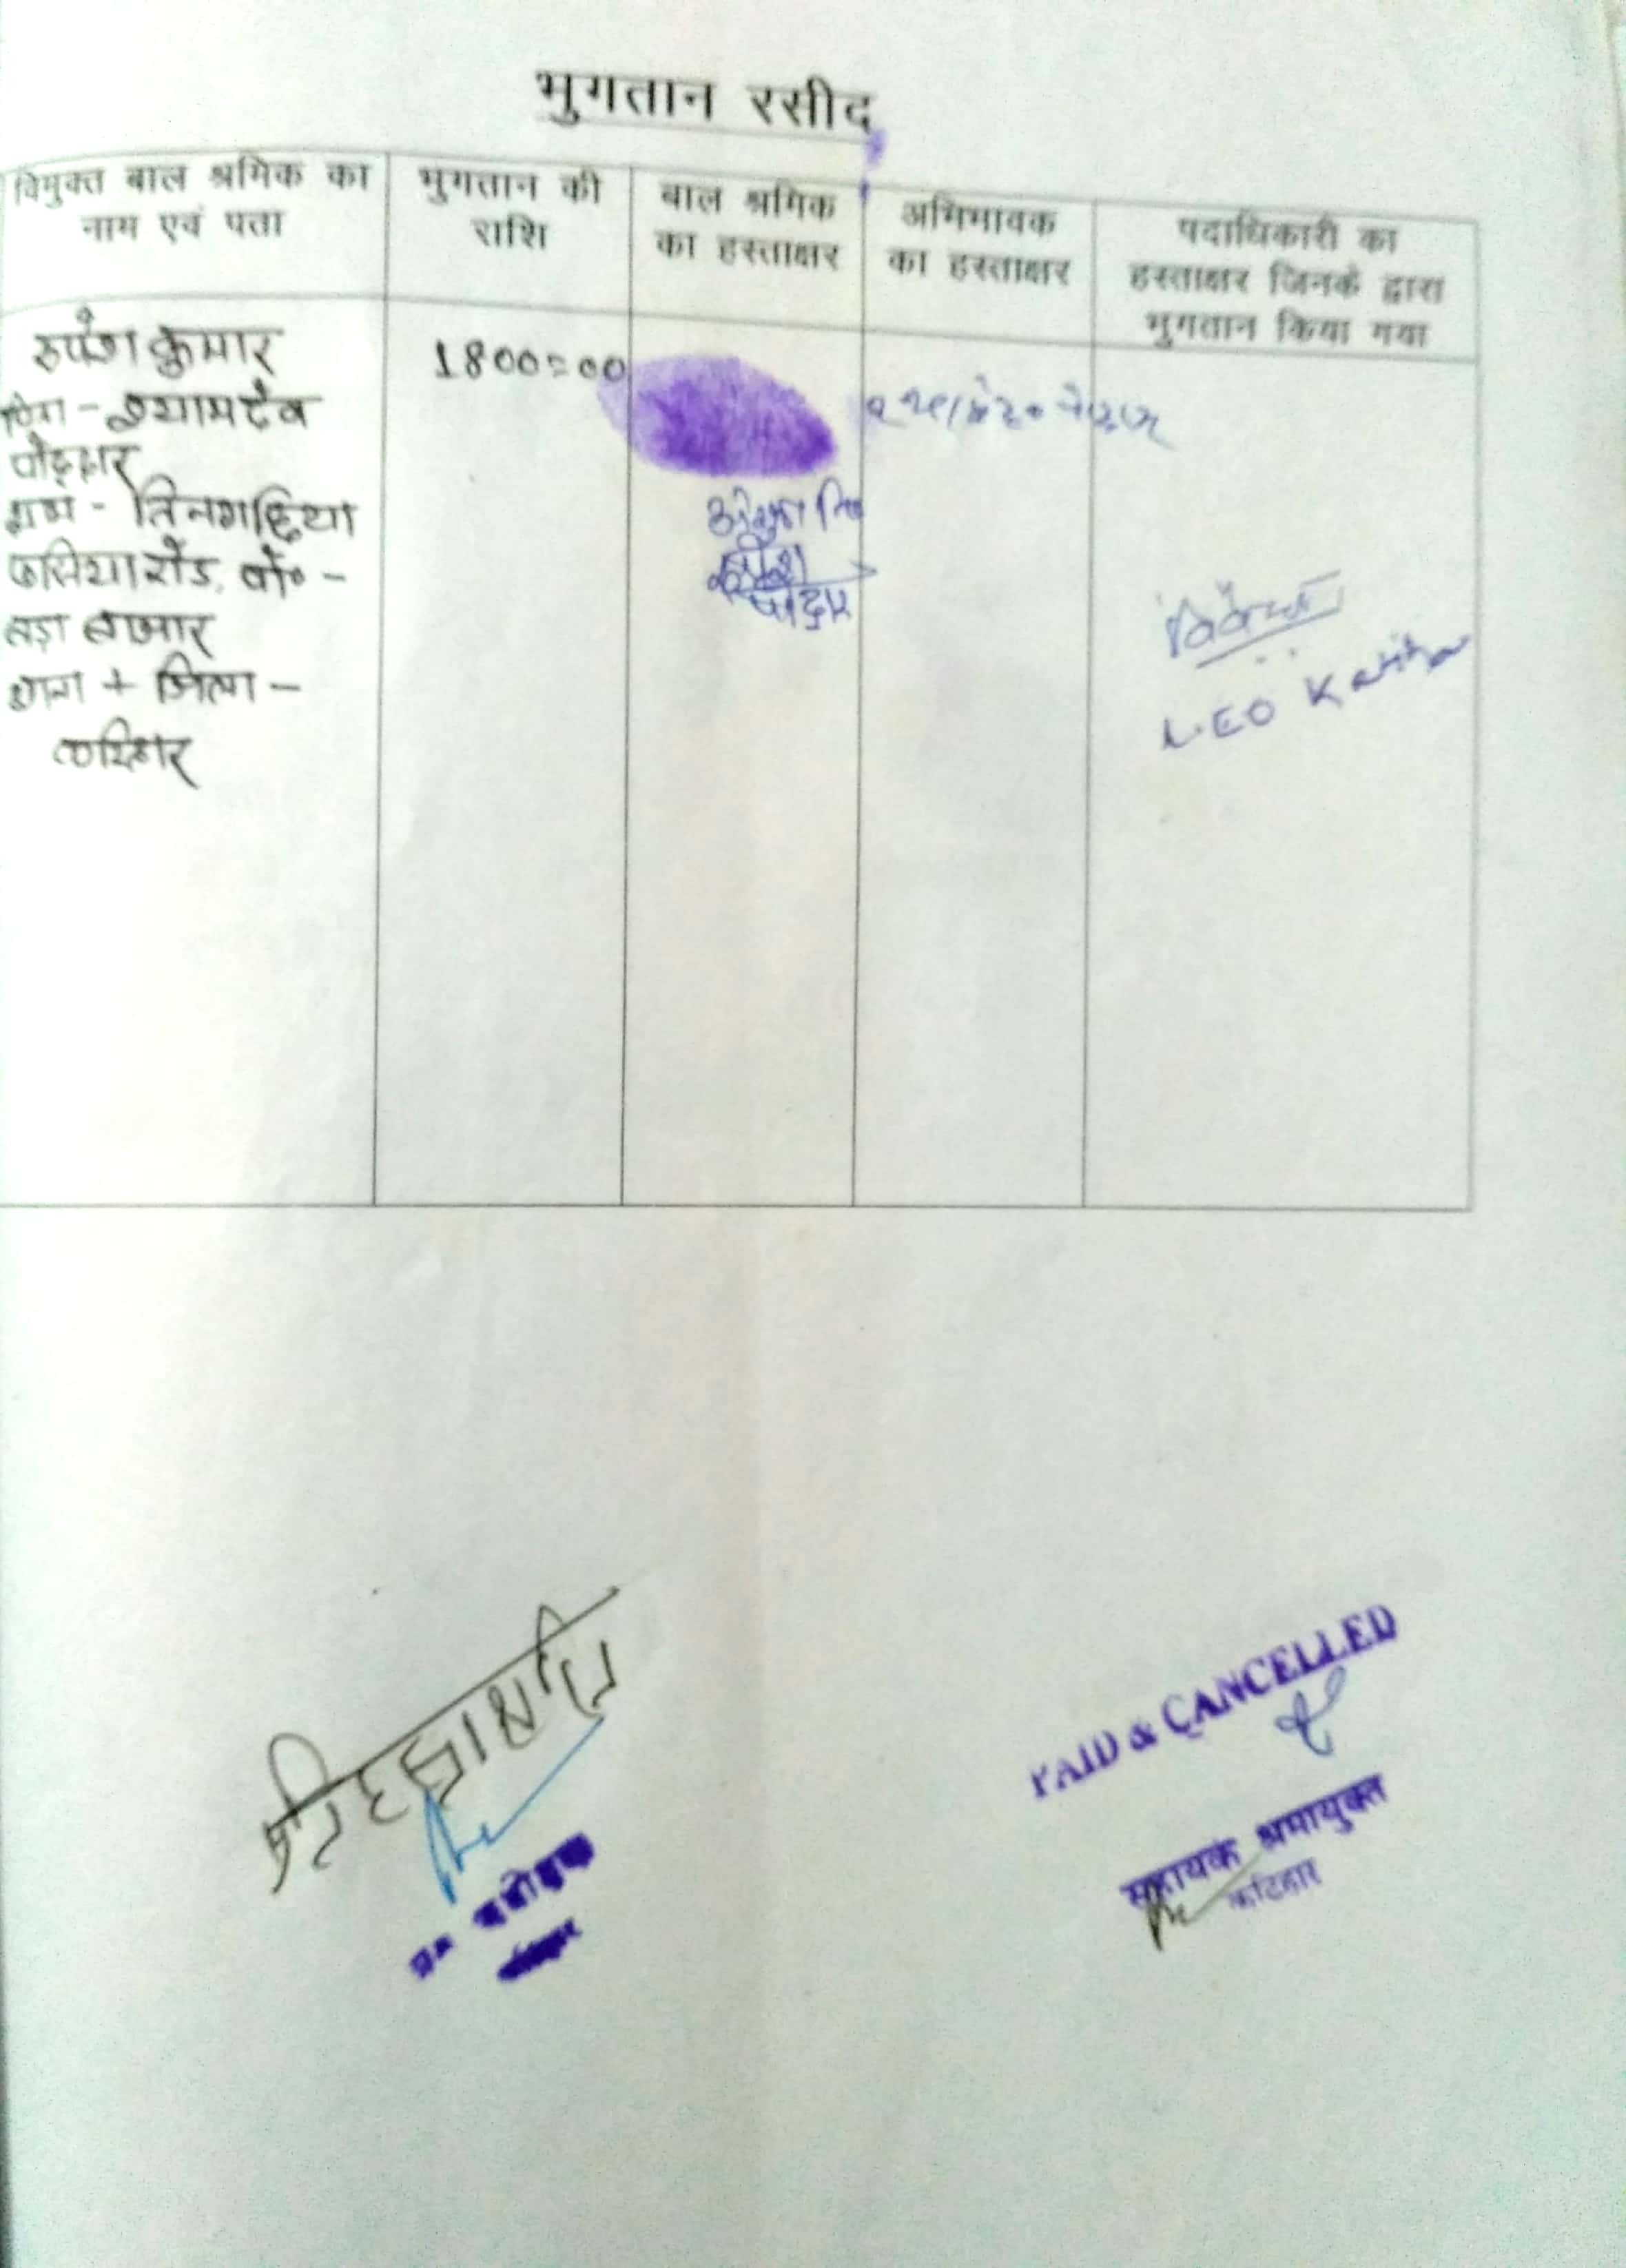 भुगतान रसीद
विमुक्त बाल श्रमिक का
नाम एवं पता
भुगतान की
राशि
बाल श्रमिक
का हस्ताक्षर
अभिभावक
का हस्ताक्षर
पदाधिकारी का
हस्ताक्षर जिनके द्वारा
भुगतान किया गया
रुपेश कुमार
पिता - श्यामदेव
पोद्दार
ग्राम - तिनगछिया
फसिया रोड, पो॰ -
बड़ा बाजार
थाना + जिला -
कटिहार
1800=00
पोद्दार
LEO Katihar
प्रतिहस्ताक्षरित
PAID & CANCELLED
सहायक श्रमायुक्त
कटिहार